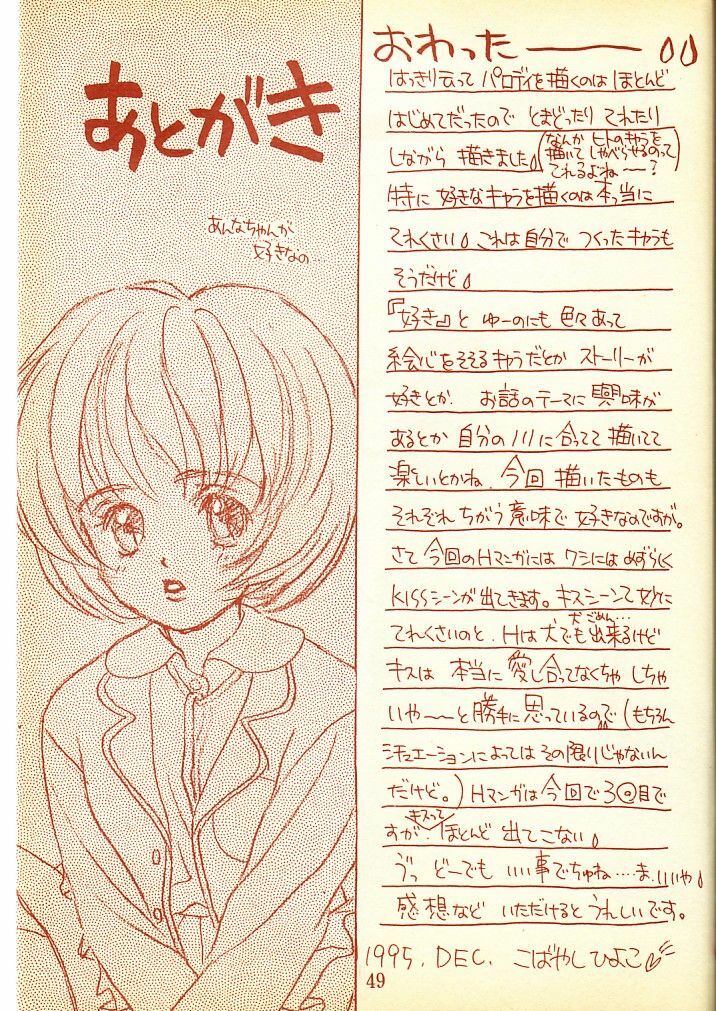 あとがき
あんなちゃんが
好きなの
おわったーー
はっきり云って パロディを描くのは ほとんど
はじめてだったので とまどったり てれたり
しながら 描きました
(なんか ヒトのキャラを
描いて しゃべらせるのって
てれるよね〜?)
特に 好きなキャラを描くのは 本当に
てれくさい。これは自分で つくったキャラも
そうだけど。
『好き』と ゆーのにも 色々あって
絵心をそそるキャラだとか ストーリーが
好きとか お話のテーマに 興味が
あるとか 自分のノリに合ってて 描いてて
楽しいとかね。今回 描いたものも
それぞれ ちがう意味で 好きなのですが。
さて 今回のHマンガには ワシには めずらしく
KISSシーンが出てきます。キスシーンて 妙に
てれくさいのと、Hは犬でも出来るけど
犬ごめん…
キスは 本当に 愛し合ってなくちゃ しちゃ
いや〜〜と勝手に思っているので (もちろん
シチュエーションによっては その限りじゃないん
だけど。) Hマンガは今回で 3回目で
すが キスって ほとんど 出てこない。
ゔっ どーでも いい事でちゅね……ま、いいや。
感想など いただけると うれしいです。
1995. DEC. こばやしひよこ
49